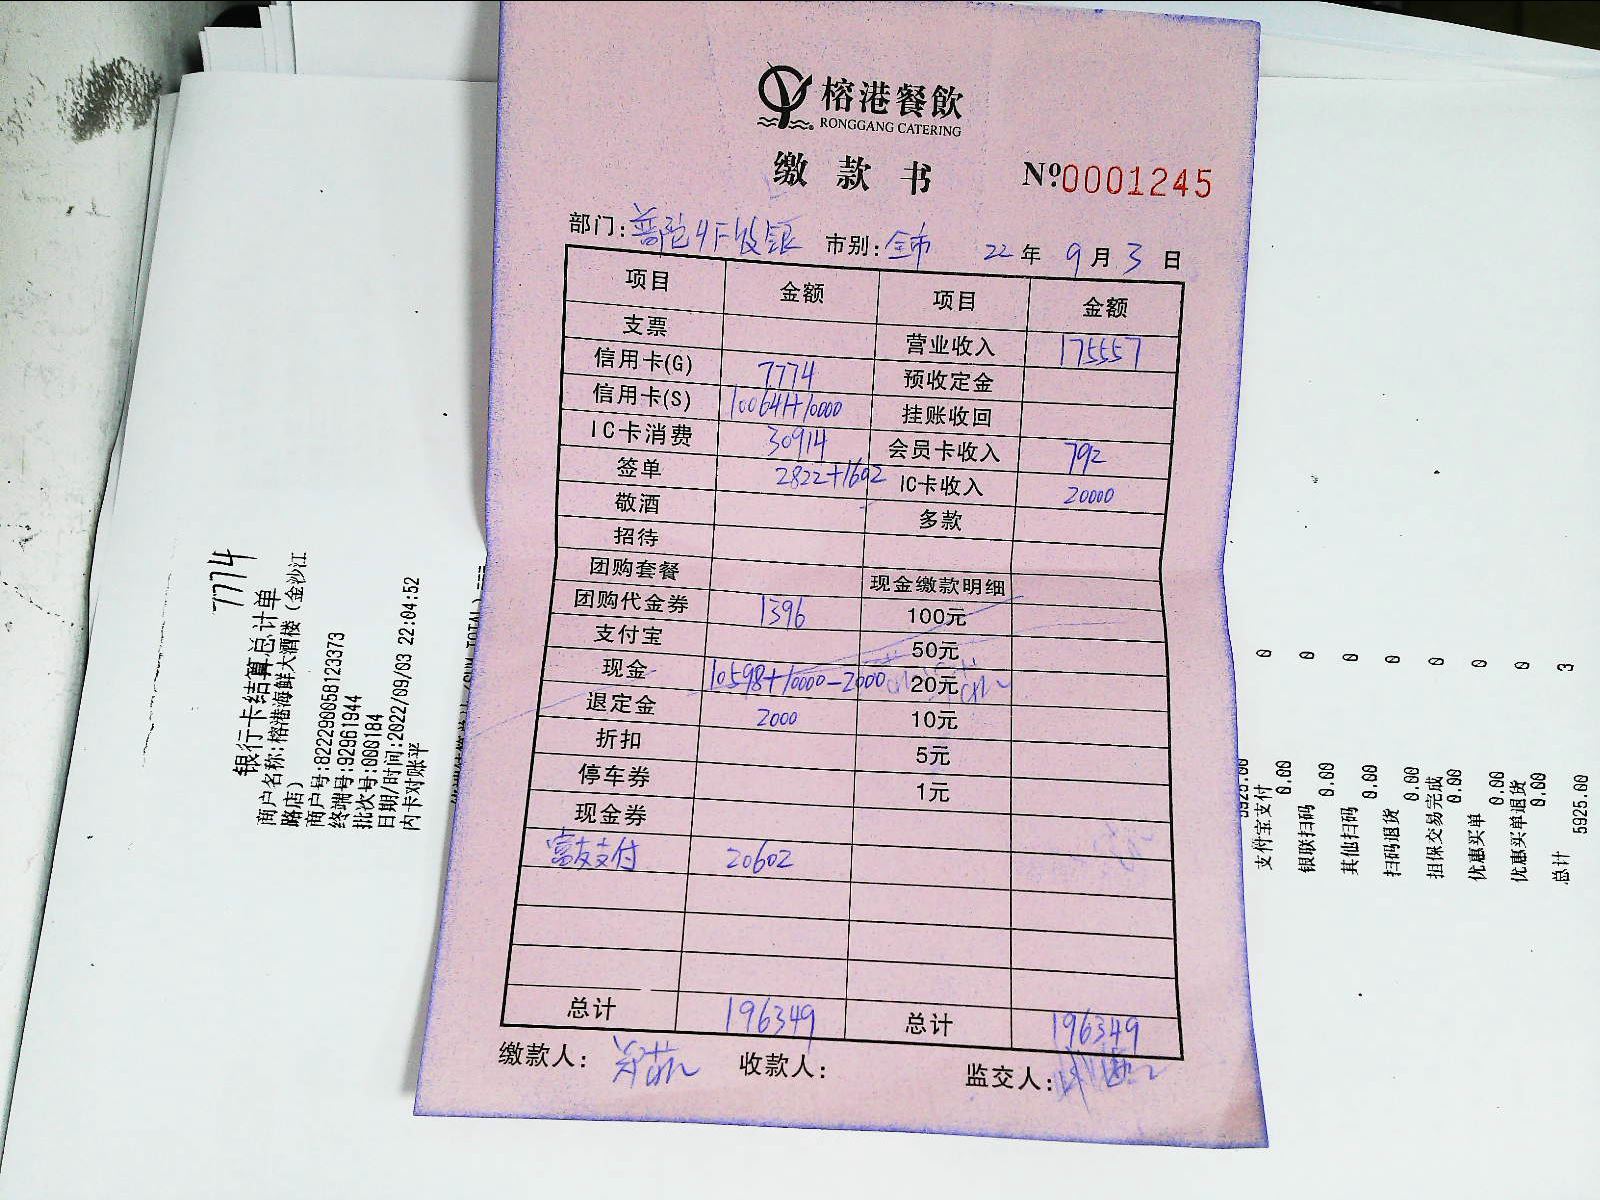 榕港餐飲
RONGGANG CATERING
缴款书 №0001245
部门: 普陀4F收银 市别: 全市 22年 9月 3日
项目 金额 项目 金额
支票 营业收入 175557
信用卡(G) 7774 预收定金
信用卡(S) 100641+10000 挂账收回
IC卡消费 30914 会员卡收入 792
签单 2822+1602 IC卡收入 20000
敬酒 多款
招待
团购套餐 现金缴款明细
团购代金券 1396 100元
支付宝 50元
现金 10598+10000-2000 20元
退定金 2000 10元
折扣 5元
停车券 1元
现金券
富友支付 20602
总计 196349 总计 196349
缴款人: 收款人: 监交人:
7774
银行卡结算总计单
商户名称:榕港海鲜大酒楼(金沙江
路店)
商户号:822290058123373
终端号:92961944
批次号:000184
日期/时间:2022/09/03 22:04:52
内卡对账平
5925.00
支付宝支付 0
0.00
银联扫码 0
0.00
其他扫码 0
0.00
扫码退货 0
0.00
担保交易完成 0
0.00
优惠买单 0
0.00
优惠买单退货 0
0.00
总计 3
5925.00